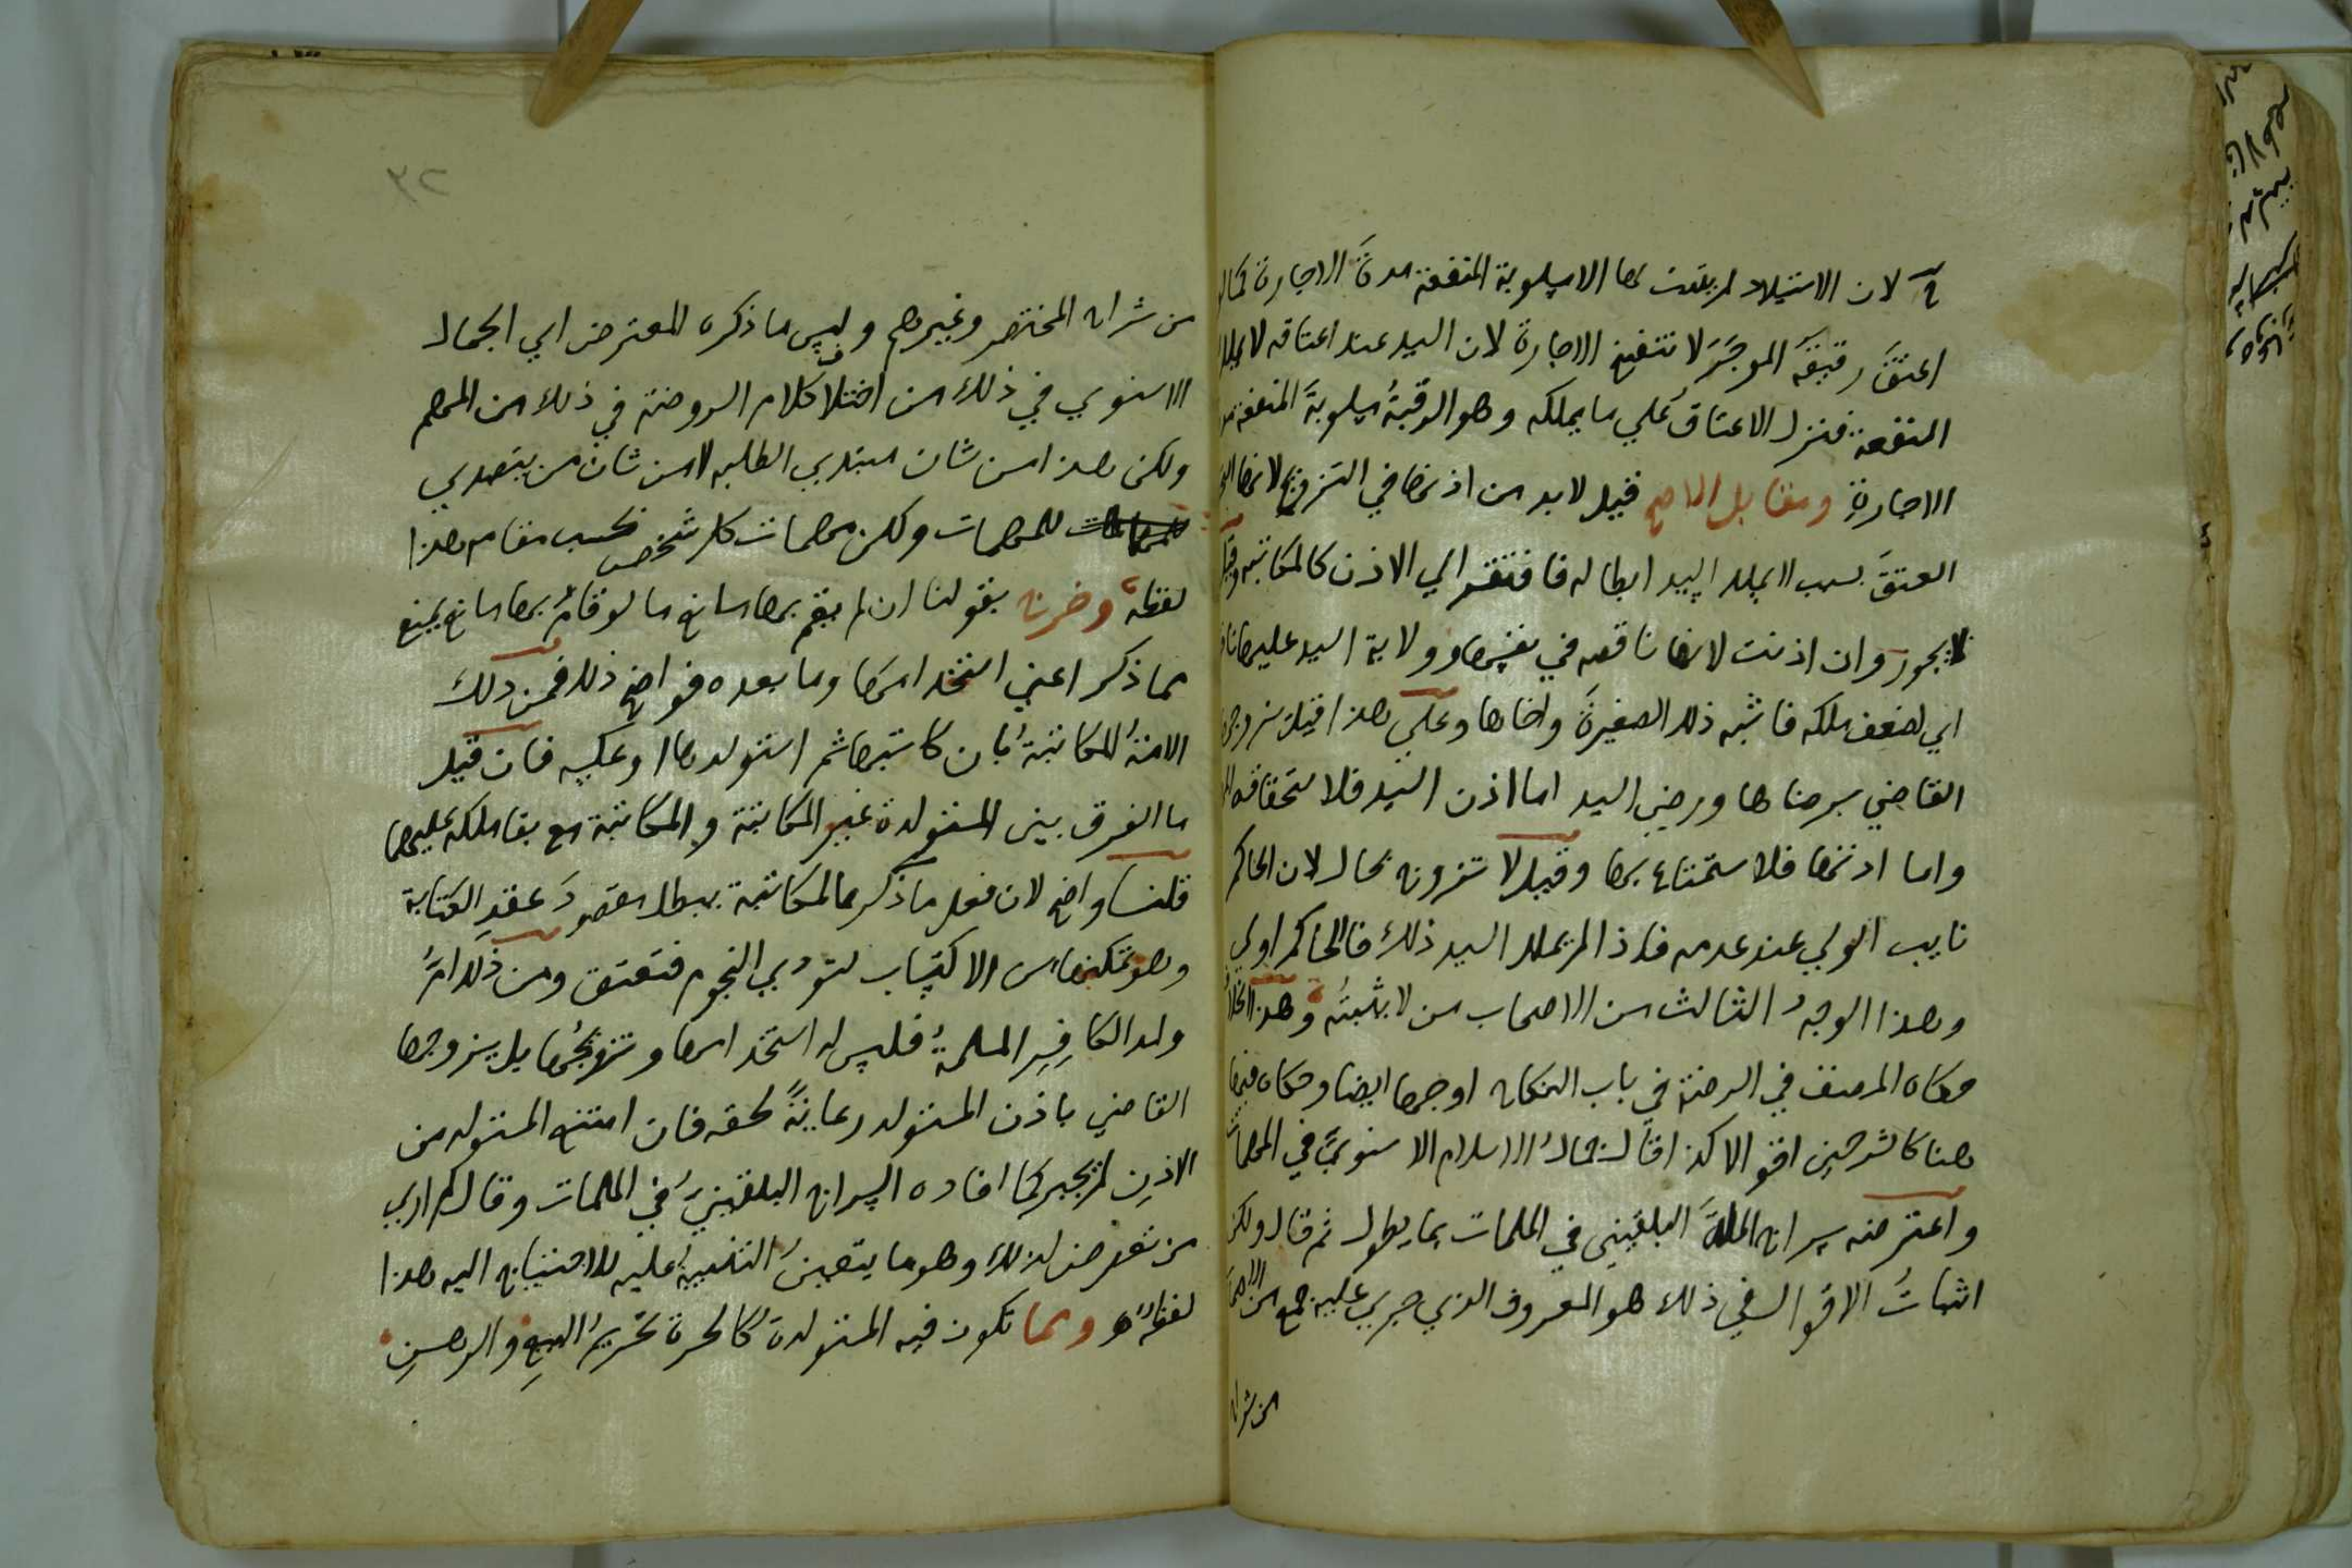 لان الاستيلاد لم يفت بها الا مسلوبة المنفعة مدة الاجارة كما لو
اعتق رقيقه الموجر لا تنفسخ الاجارة لان السيد عند اعتاقه لا يملك
المنفعة فنزل الاعتاق علي ما يملكه وهو الرقبة مسلوبة المنفعة
الاجارة ومقابل الاصح قيل لا بد من اذنها في التزويج لانها
العتق بسبب لا يملك السيد ابطاله فافتقر الي الاذن كالمكاتبة وقيل
لا يجوز وان اذنت لانها ناقصه في نفسها وولاية السيد عليها
اي لضعف ملكه فاشبه ذلك الصغيرة واخاها وعلي هذا قيل يزوجها
القاضي برضاها ورضي السيد اما اذن السيد فلاستحقاقه
واما اذنها فلاستمتاع بها وقيل لا تزوج بحال لان الحاكم
نايب الولي عند عدمه فاذا لم يملك السيد ذلك فالحاكم اولي
وهذا الوجه الثالث من الاصحاب من لا يثبته وهذا
حكاه المصنف في الروضة في باب النكاح اوجها ايضا وحكاه فيها
هنا كالشرحين اقوالا كذا قال جمال الاسلام الاسنوي في المهمات
واعترضه سراج الملة البلقيني في الملمات بما يطول ثم قال ولكن
اثبات الاقوال في ذلك هو المعروف الذي جري عليه جمع من
من شراح
٣٢
من شراح المختصر وغيرهم وليس ما ذكره المعترض اي الجمال
الاسنوي في ذلك من اختلاف كلام الروضة في ذلك من المهم
ولكن هذا من شان مبتدي الطلبه لا من شان من يتصدي
للمهمات ولكن مهمات كل شخص بحسب مقامه هذا
لفظه وخرج بقولنا ان لم يقم بها مانع ما لو قام بها مانع يمنع
مما ذكر اعني استخدامها وما بعده فواضح ذلك فمن ذلك
الامة المكاتبة بان كاتبها ثم استولدها او عكسه فان قيل
ما الفرق بين المستولدة غير المكاتبة والمكاتبة مع بقا ملكه عليها
قلنا واضح لان فعل ما ذكر بالمكاتبة يبطل مقصود عقد الكتابة
وهو تمكينها من الاكتساب لتودي النجوم فتعتق ومن ذلك ام
ولد الكافر المسلمة فليس له استخدامها وتزويجها بل يزوجها
القاضي باذن المستولد رعاية لحقه فان امتنع المستولد من
الاذن لم يجبر كما افاده السراج البلقيني في الملمات وقال لم ار
من تعرض لذلك وهو ما يتعين التنبيه عليه للاحتياج اليه هذا
لفظه ومما تكون فيه المستولدة كالحرة تحريم البيع والرهن